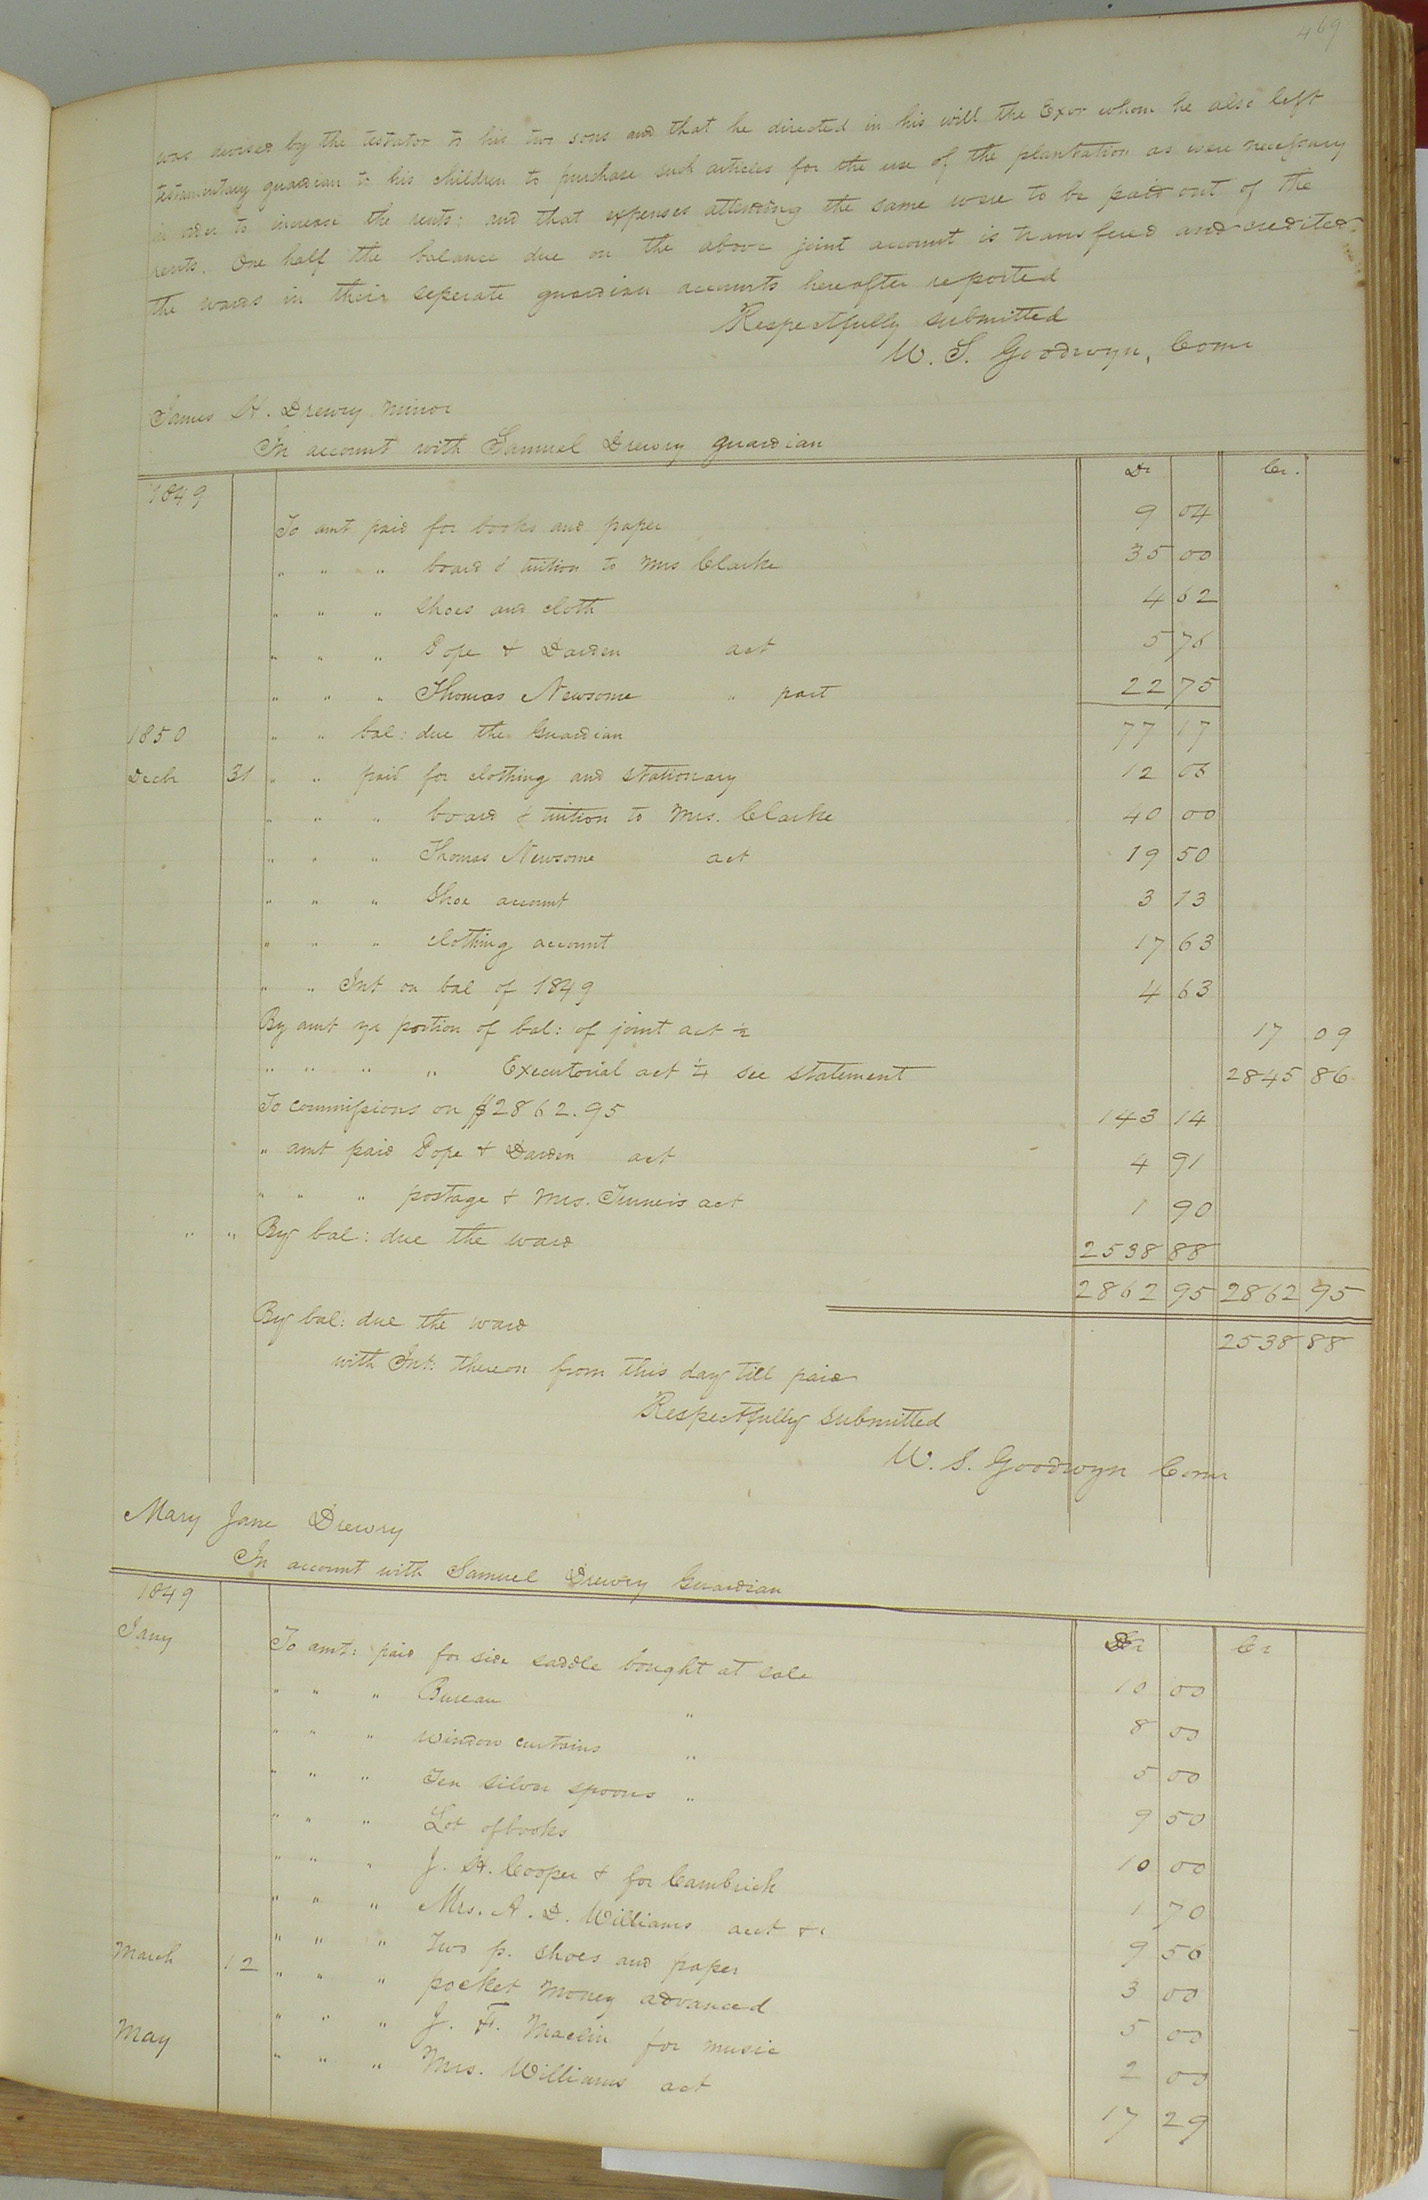 469
was devised by the testator to his two sons and that he directed in his will the Exor whom he also left
testamentary guardian to his children to purchase such articles for the use of the plantation as were necessary
in order to increase the rents: and that expenses attending the same were to be paid out of the
rents. One half the balance due on the above joint account is transfered and credited
the wards in their seperate guardian accounts hereafter reported
Respectfully submitted
W. S. Goodwyn, Comr
James H. Drewry minor
In account with Samuel Drewry guardian
Dr Cr.
1849
To amt paid for books and paper 9 04
" " " board & tuition to Mrs Clarke 35 00
" " " Shoes and cloth 4 62
" " " Pope & Darden act 5 76
" " " Thomas Newsome " part 22 75
1850 " " bal: due the Guardian 77 17
Decbr 31 " " paid for clothing and stationary 12 06
" " " board & tuition to Mrs. Clarke 40 00
" " " Thomas Newsome act 19 50
" " " Shoe account 3 13
" " " clothing account 17 63
" " Int on bal of 1849 4 63
By amt yr portion of bal: of joint act ½ 17 09
" " " " Executorial act ¼ see statement 2845 86
To commissions on $2862.95 143 14
" amt paid Pope & Darden act 4 91
" " " postage & Mrs. act 1 90
" " By bal: due the ward 2538 88
2862 95 2862 95
By bal: due the ward 2538 88
with Int: thereon from this day till paid
Respectfully submitted
W. S. Goodwyn Comr
Mary Jane Drewry
In account with Samuel Drewry Guardian
1849
Dr Cr
Jany To amt: paid for side saddle bought at sale 10 00
" " " Bureau " 8 00
" " " Window curtains " 5 00
" " " Ten silver spoons " 9 50
" " " Lot of books 10 00
" " " J. H. Cooper & for Cambrick 1 70
" " " Mrs. A. D. Williams act &c 9 56
" " " Two p. shoes and paper 3 00
March 12 " " " pocket money advanced 5 00
" " " J. F. Maclin for music 2 00
May " " " Mrs. Williams act 17 29